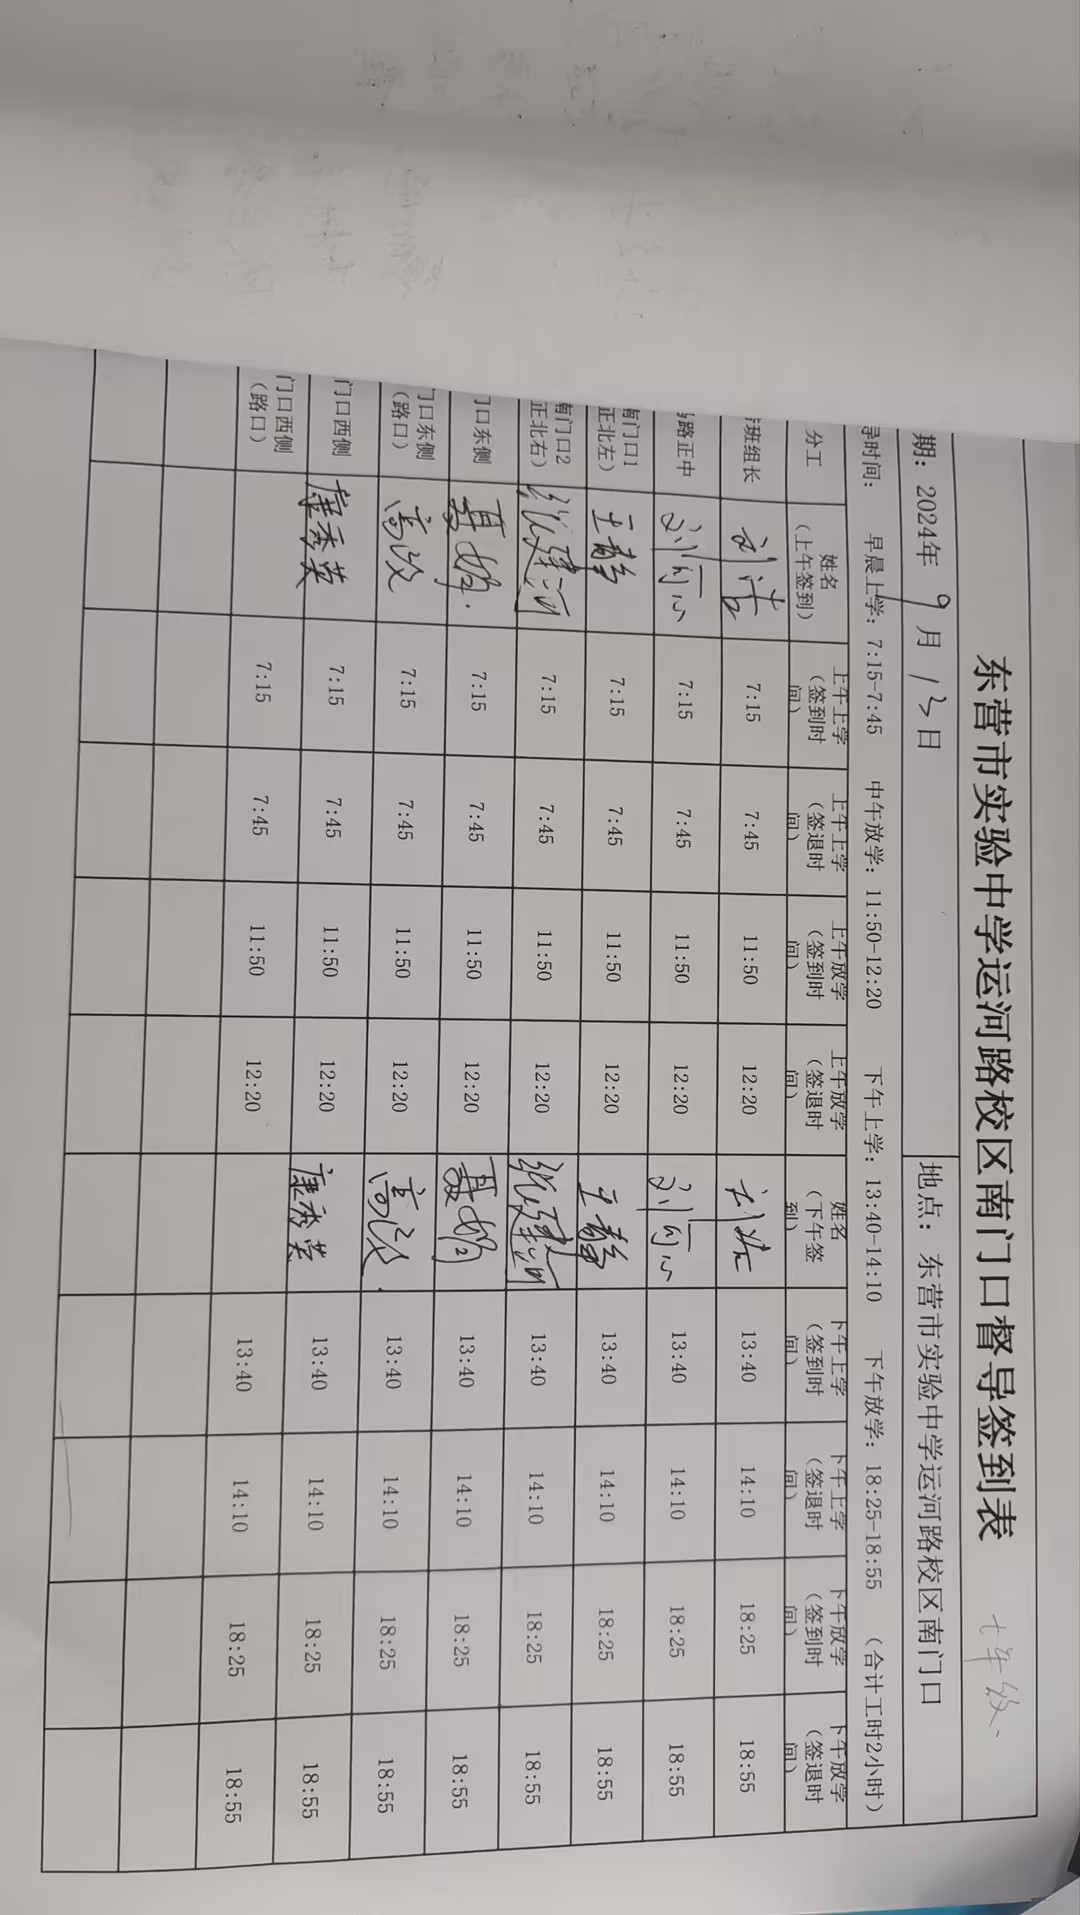 东营市实验中学运河路校区南门口督导签到表 七年级、
期: 2024年 9月 13日 地点: 东营市实验中学运河路校区南门口
导时间: 早晨上学: 7:15-7:45 中午放学: 11:50-12:20 下午上学: 13:40-14:10 下午放学: 18:25-18:55 (合计工时2小时)
分工 姓名(上午签到) 上午上学(签到时间) 上午上学(签退时间) 上午放学(签到时间) 上午放学(签退时间) 姓名(下午签到) 下午上学(签到时间) 下午上学(签退时间) 下午放学(签到时间) 下午放学(签退时间)
班组长 刘浩 7:15 7:45 11:50 12:20 13:40 14:10 18:25 18:55
路正中 7:15 7:45 11:50 12:20 13:40 14:10 18:25 18:55
南门口1 正北左) 王静 7:15 7:45 11:50 12:20 王静 13:40 14:10 18:25 18:55
南门口2 正北右) 张建河 7:15 7:45 11:50 12:20 张建河 13:40 14:10 18:25 18:55
门口东侧 聂娟 7:15 7:45 11:50 12:20 聂娟 13:40 14:10 18:25 18:55
门口东侧(路口) 高波 7:15 7:45 11:50 12:20 高波 13:40 14:10 18:25 18:55
门口西侧 康秀英 7:15 7:45 11:50 12:20 康秀英 13:40 14:10 18:25 18:55
门口西侧(路口) 7:15 7:45 11:50 12:20 13:40 14:10 18:25 18:55